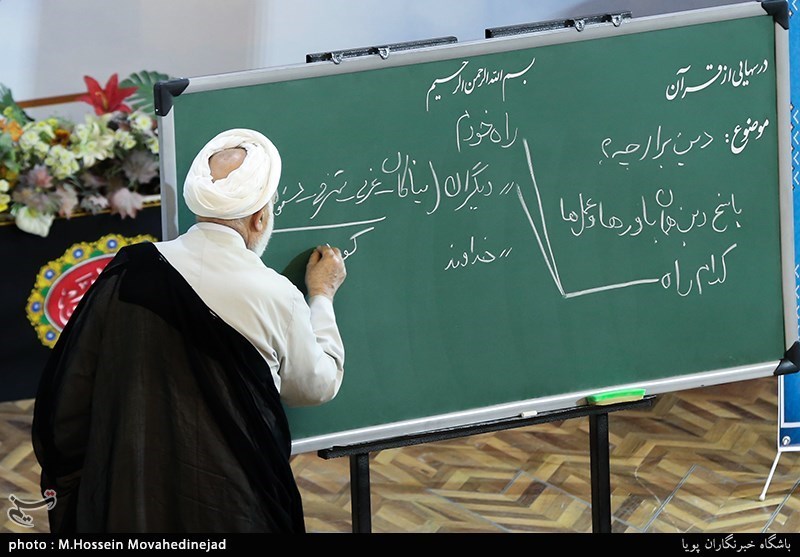 بسم الله الرحمن الرحیم
درسهایی از قرآن
موضوع: دین برای چه؟
پاسخ دین‌ها، باورها و عمل‌ها
کدام راه
راه خودم
〃 دیگران (نیاکان، غربی، شرقی
〃 خداوند
تسنیم
photo : M.Hossein Movahedinejad
باشگاه خبرنگاران پویا